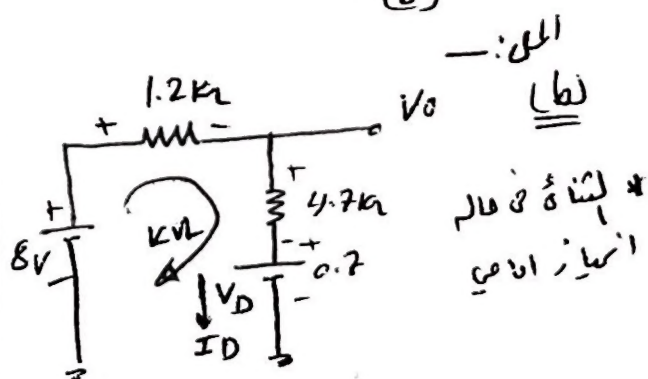 الحل :—
(b)
1.2 kΩ
+ -
Vo
+
4.7kΩ
+
8V
KVL
- +
0.7
VD
-
ID
* الثنائي في حالة
انحياز امامي